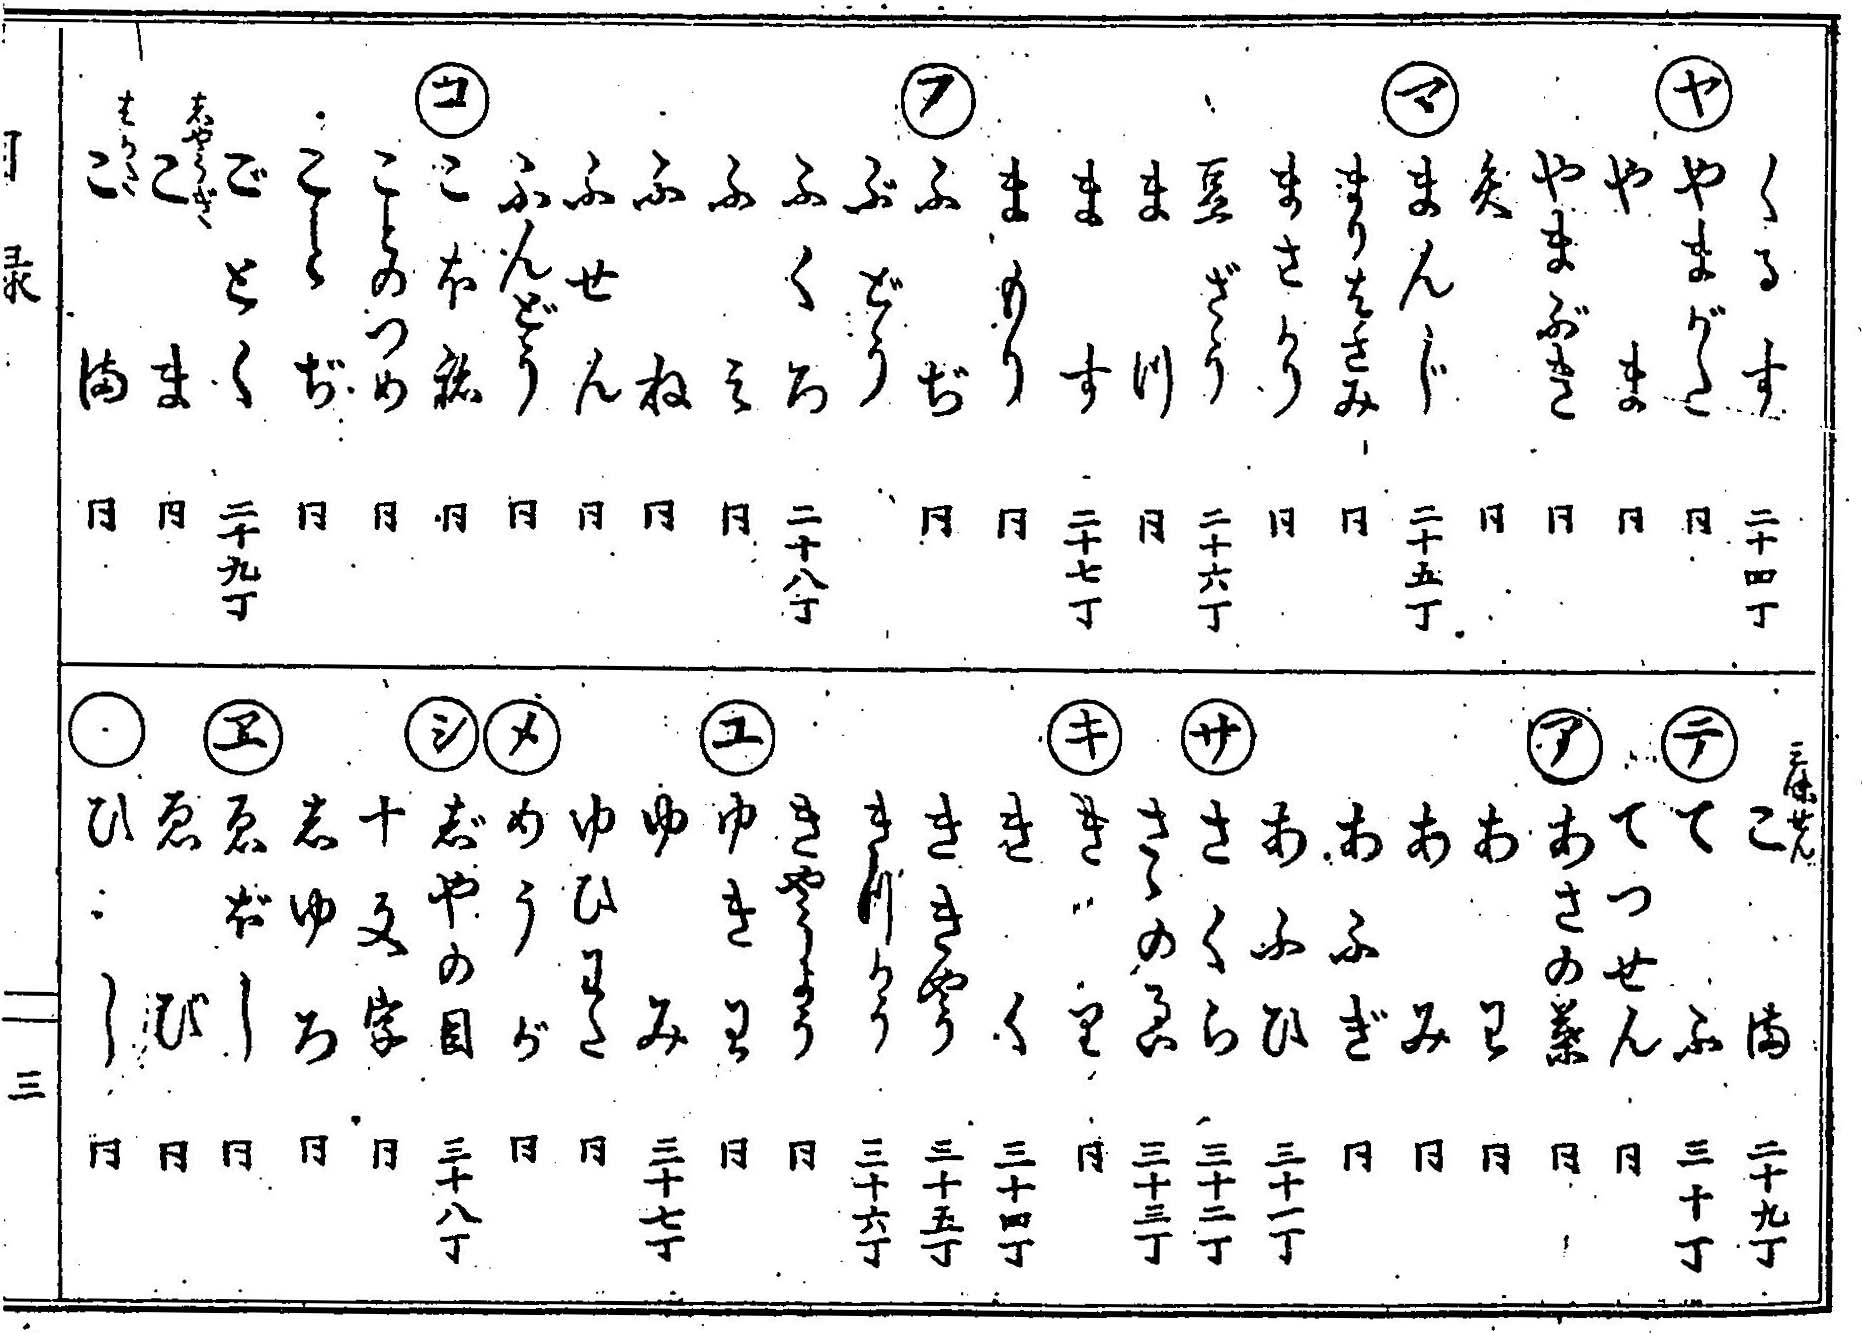 くるす 二十四丁
ヤ やまがた 同
やま 同
やまぶき 同
矢 同
マ まんじ 二十五丁
まりはさみ 同
まさかり 同
豆ざう 二十六丁
ま川 同
ます 二十七丁
まめり 同
フ ふぢ 同
ぶどう
ふくろ 二十八丁
ふえ 同
ふね 同
ふせん 同
ふんどう 同
コ こおね 同
ことのつめ 同
こうぢ 同
ごとく 二十九丁
しやうぎ こま 同
こま 同
三味せん こま 二十九丁
テ てふ 三十丁
てつせん 同
ア あさの葉 同
あり 同
あみ 同
あふぎ 同
あふひ 三十一丁
サ さくら 三十二丁
さゝのゑ 三十三丁
キ きり 同
きく 三十四丁
ききやう 三十五丁
き川かう 三十六丁
きやうよう 同
ユ ゆきわ 同
ゆみ 三十七丁
ゆひわた 同
メ めうが 同
シ じやの目 三十八丁
十文字 同
しゆろ 同
ヱ ゑぼし 同
ゑび 同
ひし 同
目録
三